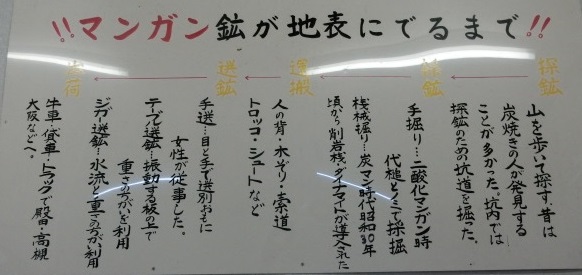 !!マンガン鉱が地表にでるまで!!
探鉱
山を歩いて探す。昔は
炭焼きの人が発見する
ことが多かった。坑内では
探鉱のための坑道を掘った。
採鉱
手掘り…二酸化マンガン時
代槌とノミで採掘
機械掘り…炭マン時代昭和30年
頃から削岩機・ダイナマイトが導入された
運搬
人の背・木ゾリ・索道
トロッコ・シュートなど
選鉱
手選…目と手で選別おもに
女性が従事した。
テーブル選鉱…振動する板の上で
重さのちがいを利用
ジガ選鉱…水流と重さのちがい利用
出荷
牛車・貨車・トラックで殿田・高槻
大阪などへ。